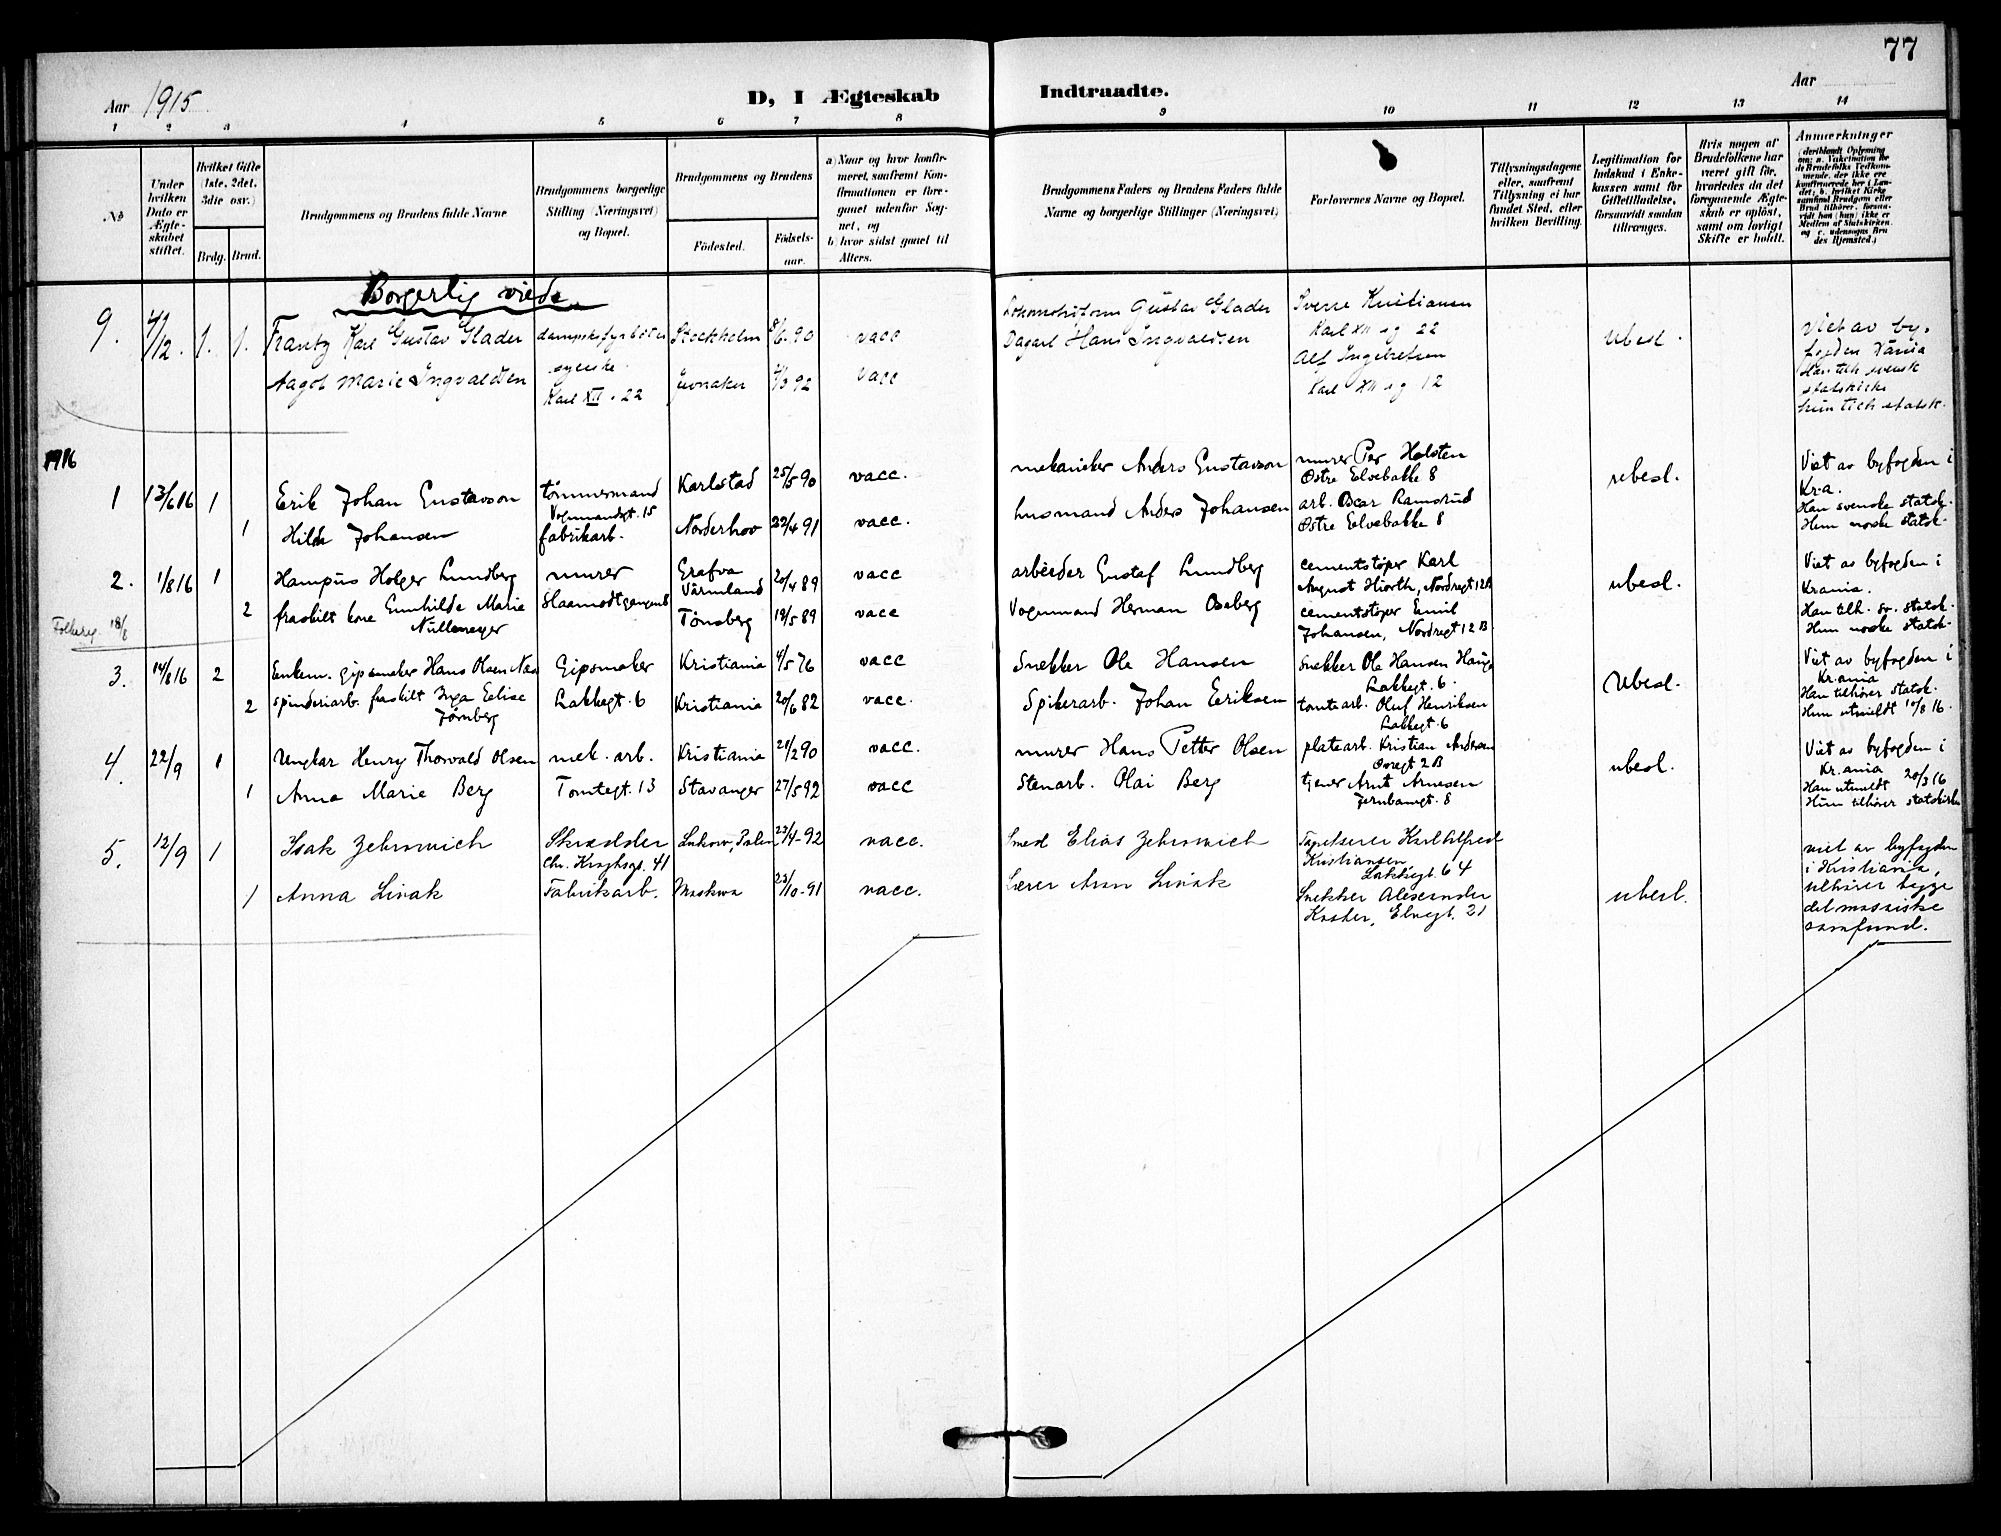 77
Aar 1915
D, I Ægteskab Indtraadte.
Aar
1 2 3 4 5 6 7 8 9 10 11 12 13 14
No
Under hvilken Dato er Ægteskabet stiftet.
Hvilket Gifte (1ste, 2det, 3die osv.)
Brdg. Brud.
Brudgommens og Brudens fulde Navne
Brudgommens borgerlige Stilling (Næringsvei) og Bopæl.
Brudgommens og Brudens
Födested.
Födselsaar.
a) Naar og hvor konfirmeret, saafremt Konfirmationen er foregaaet udenfor Sognet, og
b) hvor sidst gaaet til Alters.
Brudgommens Faders og Brudens Faders fulde Navne og borgerlige Stillinger (Næringsvei)
Forlovernes Navne og Bopæl.
Tillysningsdagene eller, saafremt Tillysning ei har fundet Sted, efter hvilken Bevilling.
Legitimation for Indskud i Enkekassen samt for Giftetilladelse, forsaavidt saadan tiltrænges.
Hvis nogen af Brudefolkene har været gift før, hvorledes da det foregaaende Ægteskab er opløst, samt om lovligt Skifte er holdt.
Anmærkninger
(deriblandt Oplysning om: a. Vakcination for de Brudefolks Vedkommende, der ikke ere konfirmerede her i Landet; b. hvilket Kirkesamfund Brudgom eller Brud tilhører, forsaavidt han (hun) ikke er Medlem af Statskirken, og c. udensogns Brudes Hjemsted.)
Borgerlig viede
9. 4/12. 1. 1. Frantz Karl Gustav Glader dampskipsfyrbøter Stockholm 8/6-90 vacc
svenske
Aagot Marie Ingvaldsen Karl XII g 22 Jevnaker 92 vacc
Gustav Glader
Dagarb Hans Ingvaldsen
Sverre Kristiansen
Karl XII sg 22
Alf Ingebretsen
Karl XII sg 12
ubesl.
Viet av by-
fogden Kania
Han tilh svensk
statskirke
hun tilh statsk.
1916
1 13/6 16 1 Erik Johan Gustavson tømmermand Karlstad 25/5 90 vacc.
Vognmandsgt. 15
1 Hilda Johansen fabrikarb. Norderhov 22/4 91 vacc.
mekaniker Anders Gustavson
husmand Anders Johansen
murer Per Holsten
Østre Elvebakke 8
arb. Oscar Ramsrud
Østre Elvebakke 8
ubesl.
Viet av byfogden i
Kr.a.
Han svenske statsk.
Hun norske statsk.
2. 1/8 16 1 Hampus Holger Lundberg murer Grafva
Värmland 20/4 89 vacc
2 fraskilt kone Gunhilde Marie
Nullmeyer Slaamodtgangen 8 Tønsberg 19/5 89 vacc
Folkereg. 18/8
arbeider Gustaf Lundberg
Vognmand Herman Oseberg
cementstøper Karl
August Hiorth, Nordregt 12B
cementstøper Emil
Johansen, Nordregt 12B.
ubesl.
Viet av byfogden i
Krania.
Han tilh. sv. statsk.
Hun norske statsk.
3. 14/8 16 2 Enkem. gipsmaker Hans Olsen Næs Gipsmaker Kristiania 4/5 76 vacc
2 spinderiarb. fraskilt Inga Elise
Jörnberg Lakkegt. 6 Kristiania 20/6 82 vacc.
Snekker Ole Hansen
Spikerarb. Johan Eriksen
Snekker Ole Hansen Haug
Lakkegt. 6.
tomtearb. Oluf Henriksen
Lakkegt. 6
Ubesl.
Viet av byfogden i
Kr.ania
Han tilhører statsk.
Hun utmeldt 10/8 16.
4. 22/9 1 Ungkar Henry Thorvald Olsen mek. arb. Kristiania 28/2 90 vacc.
1 Anna Marie Berg Tomtegt. 13 Stavanger 27/5 92 vacc
murer Hans Petter Olsen
Stenarb. Olai Berg
platearb. Kristian Andersen
2B
tjener Arnt Arnesen
Jernbanegt. 8
ubesl.
Viet av byfogden i
Kr.ania
Han utmeldt 20/3 16
Hun tilhører statskirken
5. 12/9 1 Isak Zehnwich Skrædder Lukow, Polen 23/4-92 vacc.
Chr. Kroghsgt. 41
1 Anna Livak Fabrikarb. Moskwa 23/10-91 vacc.
Smed Elias Zehnwich
Lærer Aron Livak
Tapetserer Karl Alfred
Kristiansen,
Lakkegt. 64
Snekker Alexander
Koster, Elvegt. 21
ubesl.
viet av byfogden
i Kristiania,
tilhører begge
det mosaiske
samfund.